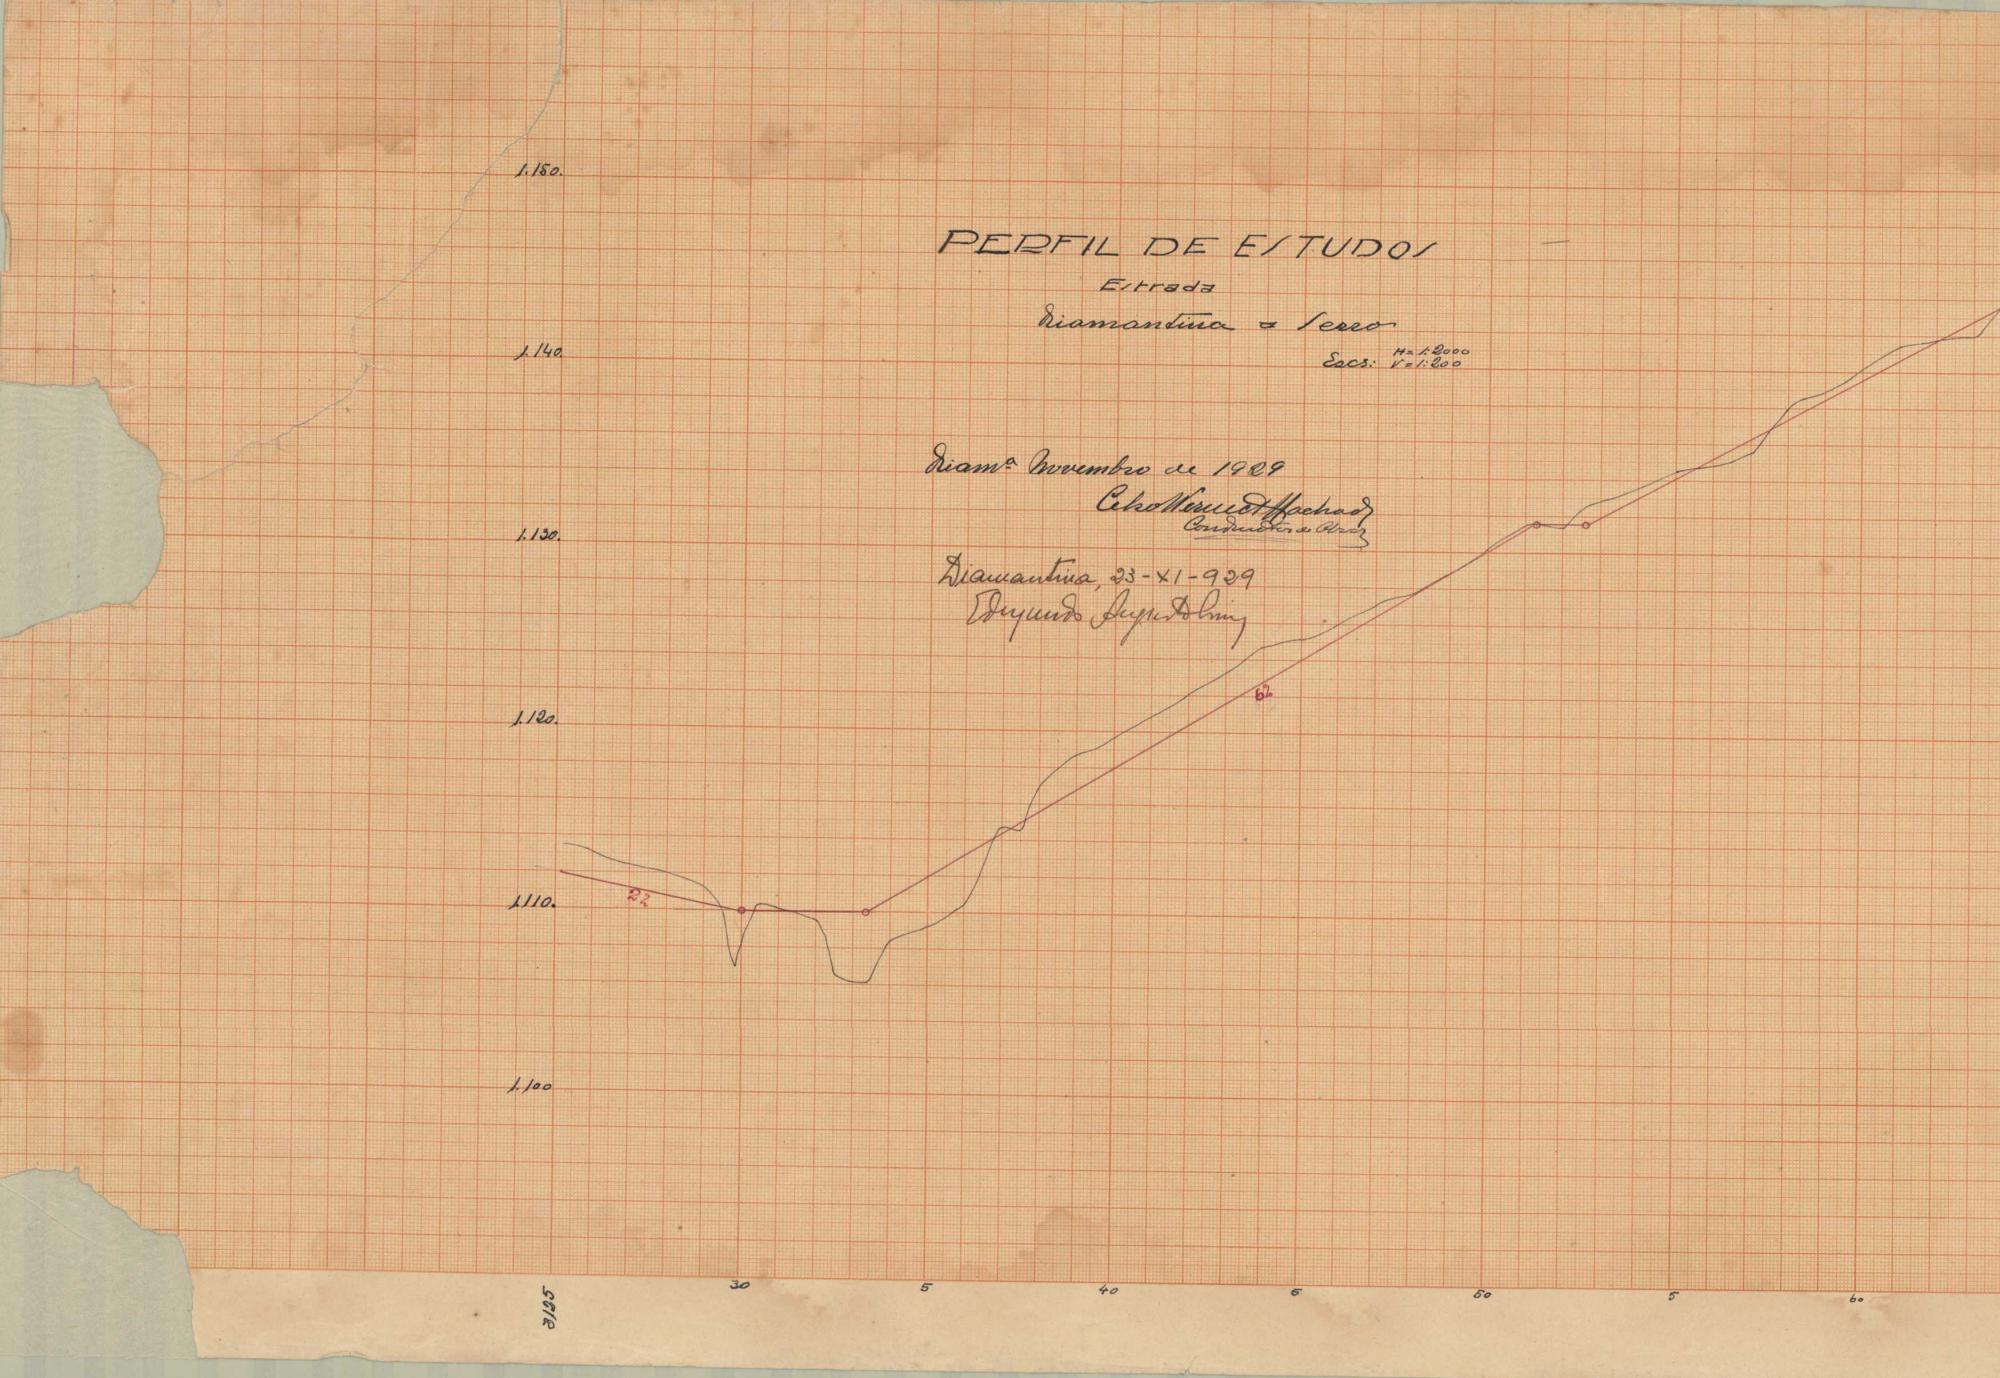 1.150.
PERFIL DE ESTUDOS
Estrada
Diamantina a Serro
Escs: H = 1:2000
V = 1:200
1.140.
Diamª Novembro de 1929
Celso Werneck Machado
Conductor de Obras
1.130.
Diamantina, 23-XI-929
Edmundo
62
1.120.
22
1.110.
1.100
3125
30
5
40
5
50
5
60